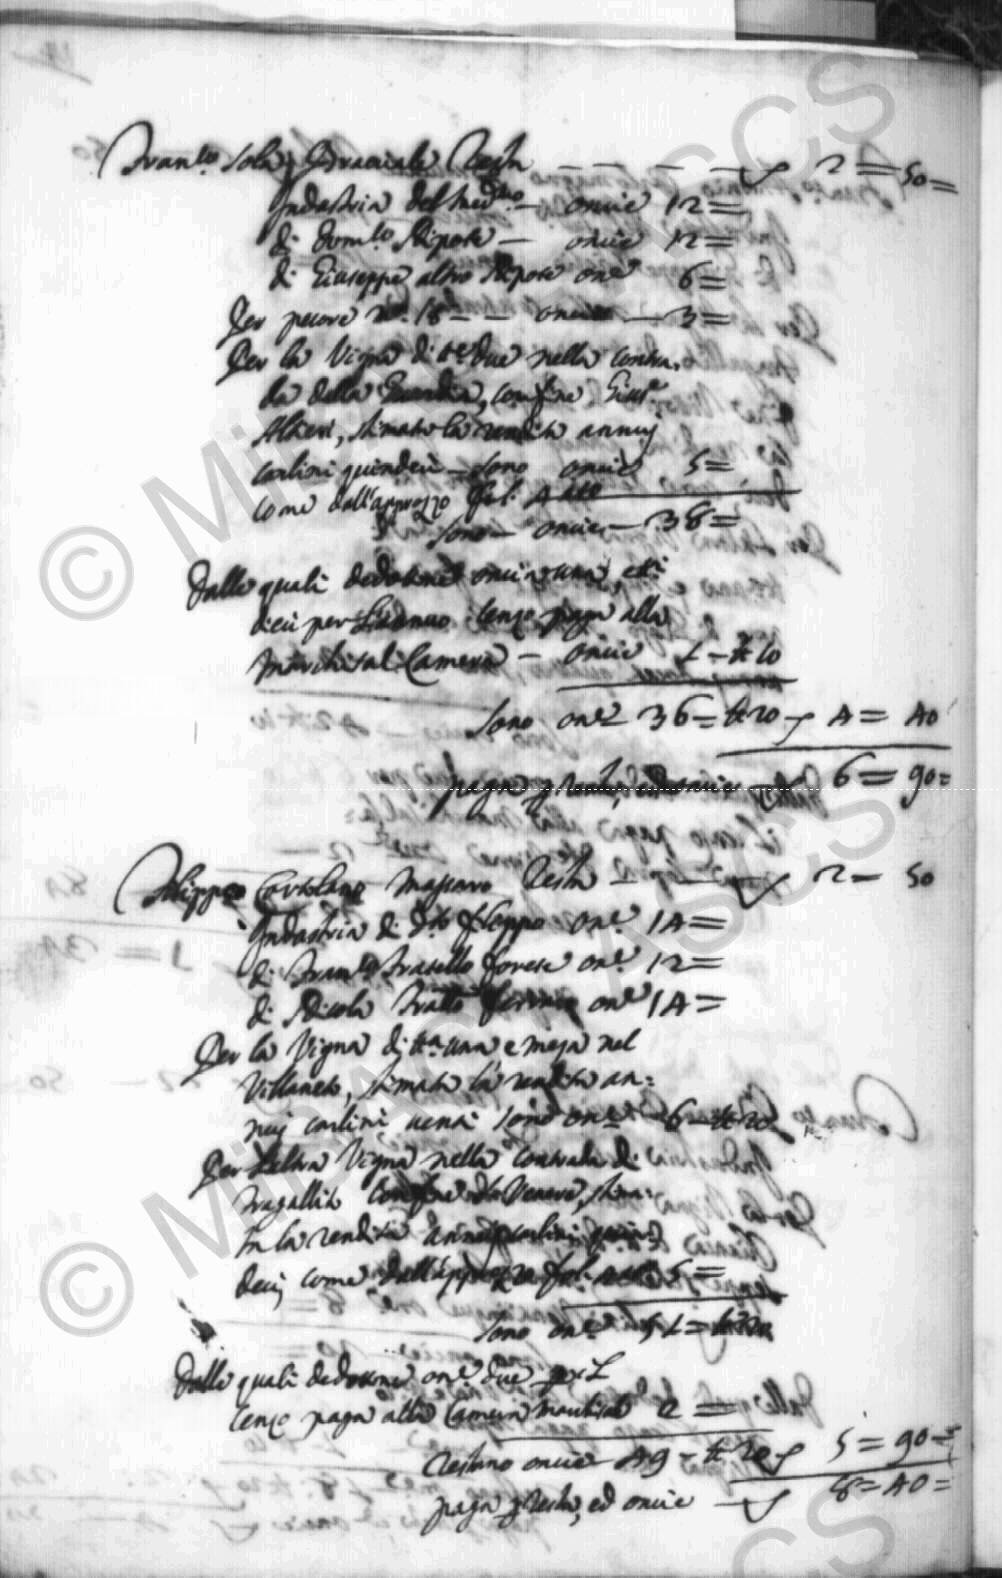 Fran.co Sola, Bracciale Testa — — — — 2 = 50 =
Industria del med.mo — oncie 12 =
di Dom.co Nipote — oncie 12 =
di Giuseppe altro Nipote on.e 6 =
Per pecore n.° 18 — — oncie — 3 =
Per la Vigna di tt.e due nella contra-
da della Guardia, confine Gius.e
Altieri, stimata la rendita annuj
carlini quindeci — sono oncie 5 =
come dall'apprezzo fol.
sono — oncie — 38 =
Dalle quali dedottone oncia una, e tt.i
dieci per l'annuo censo paga alla
Marchisal Camera — oncie 1 — tt. 10
Sono on.e 36 = tt. 20 — 4 = 40
paga per testa, ed oncie — 6 = 90 =
Filippo Cortolano Massaro Testa — — — 2 — 50
Industria di d.to Filippo on.e 14 =
di Fran.co Fratello forese on.e 12 =
di Nicola Fratello on.e 14 =
Per la Vigna di tt.a una e meza nel
Villaneto, stimata la rendita an=
nuj carlini venti sono on.e 6 — tt. 20
Per l'altra Vigna nella Contrada di
Fragallito confine di Venere, stima=
ta la rendita annuj carlini quin=
decj come dall'apprezzo fol. 5 =
Sono on.e 51 = tt. 20
Dalle quali dedottone on.e due per l
censo paga alla Camera Marchisal 2 =
Restano oncie 49 — tt. 20 — 5 = 90 =
paga per testa, ed oncie — 8 = 40 =
© MiBAC ASCS
© MiBAC ASCS